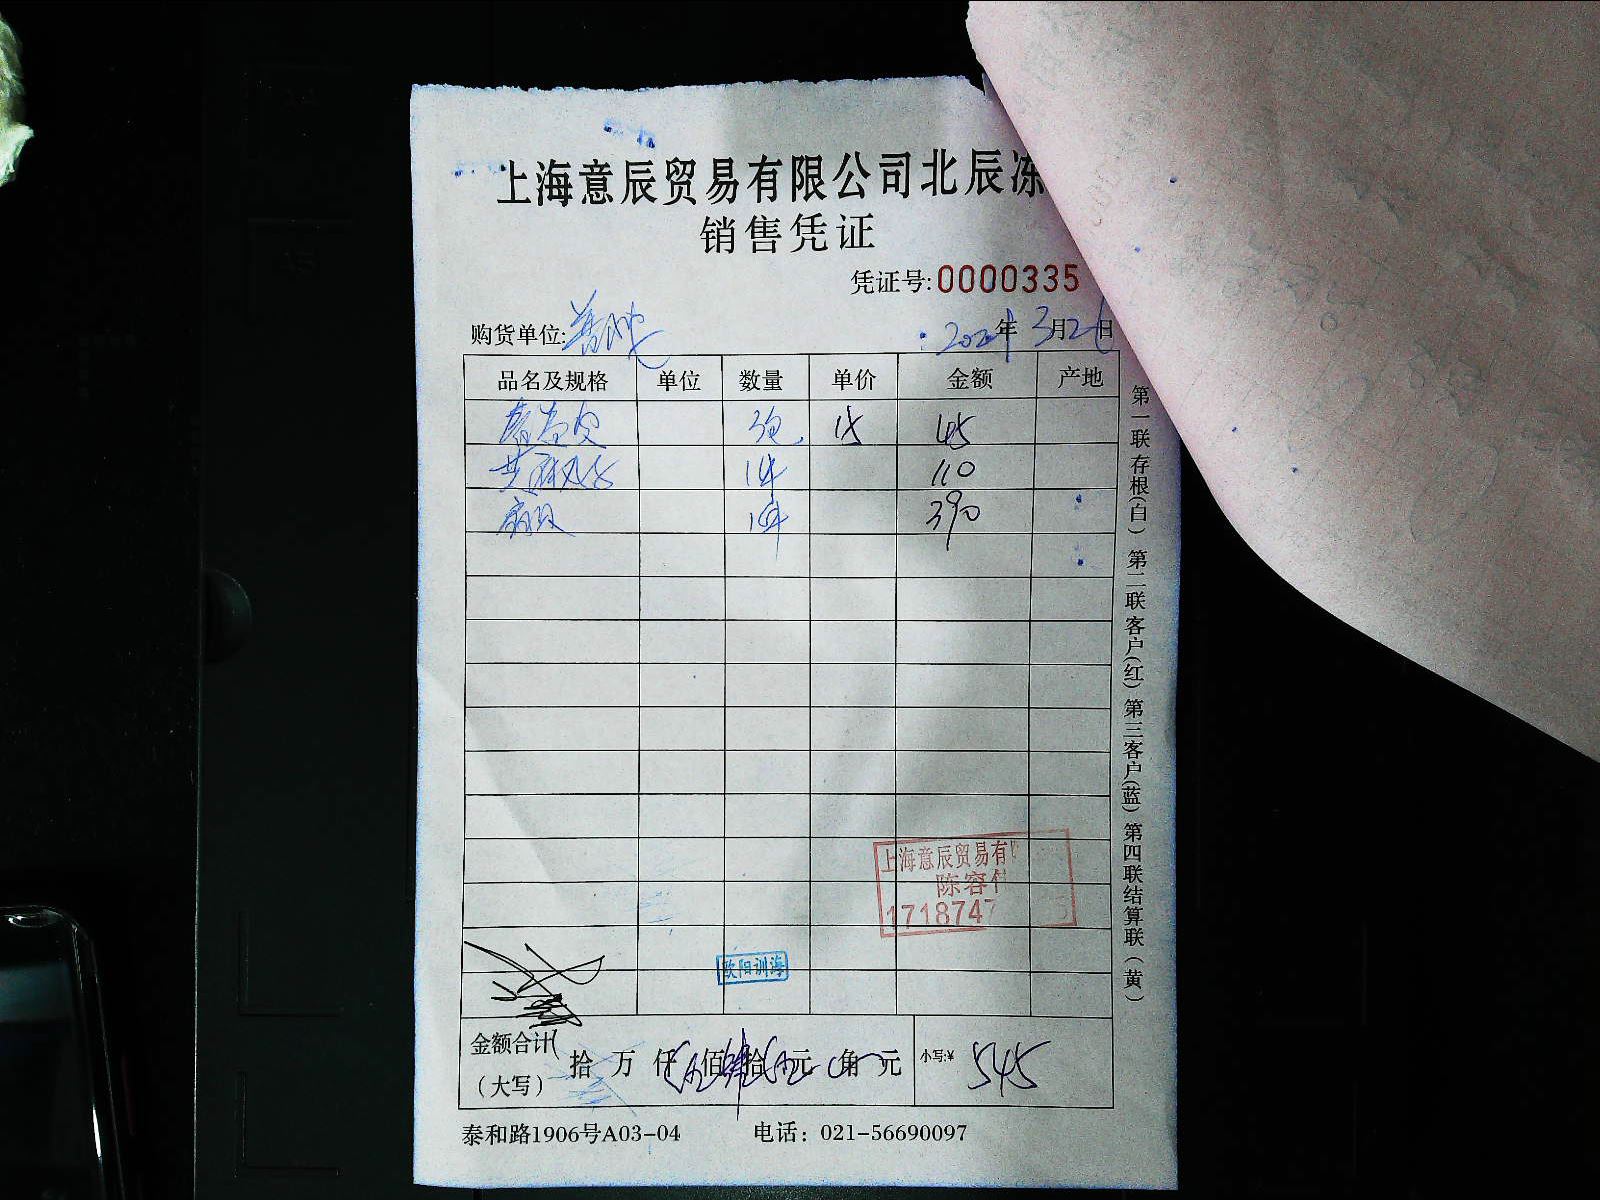 上海意辰贸易有限公司北辰冻
销售凭证
凭证号:0000335
购货单位: 年3月2日
品名及规格 单位 数量 单价 金额 产地
3包 15 45
1件 110
1件 390
上海意辰贸易有
陈容
1718747
欧阳训海
金额合计 拾万仟伍佰肆拾伍元角元 小写:¥ 545
(大写)
泰和路1906号A03-04 电话：021-56690097
第一联存根(白) 第二联客户(红) 第三客户(蓝) 第四联结算联(黄)